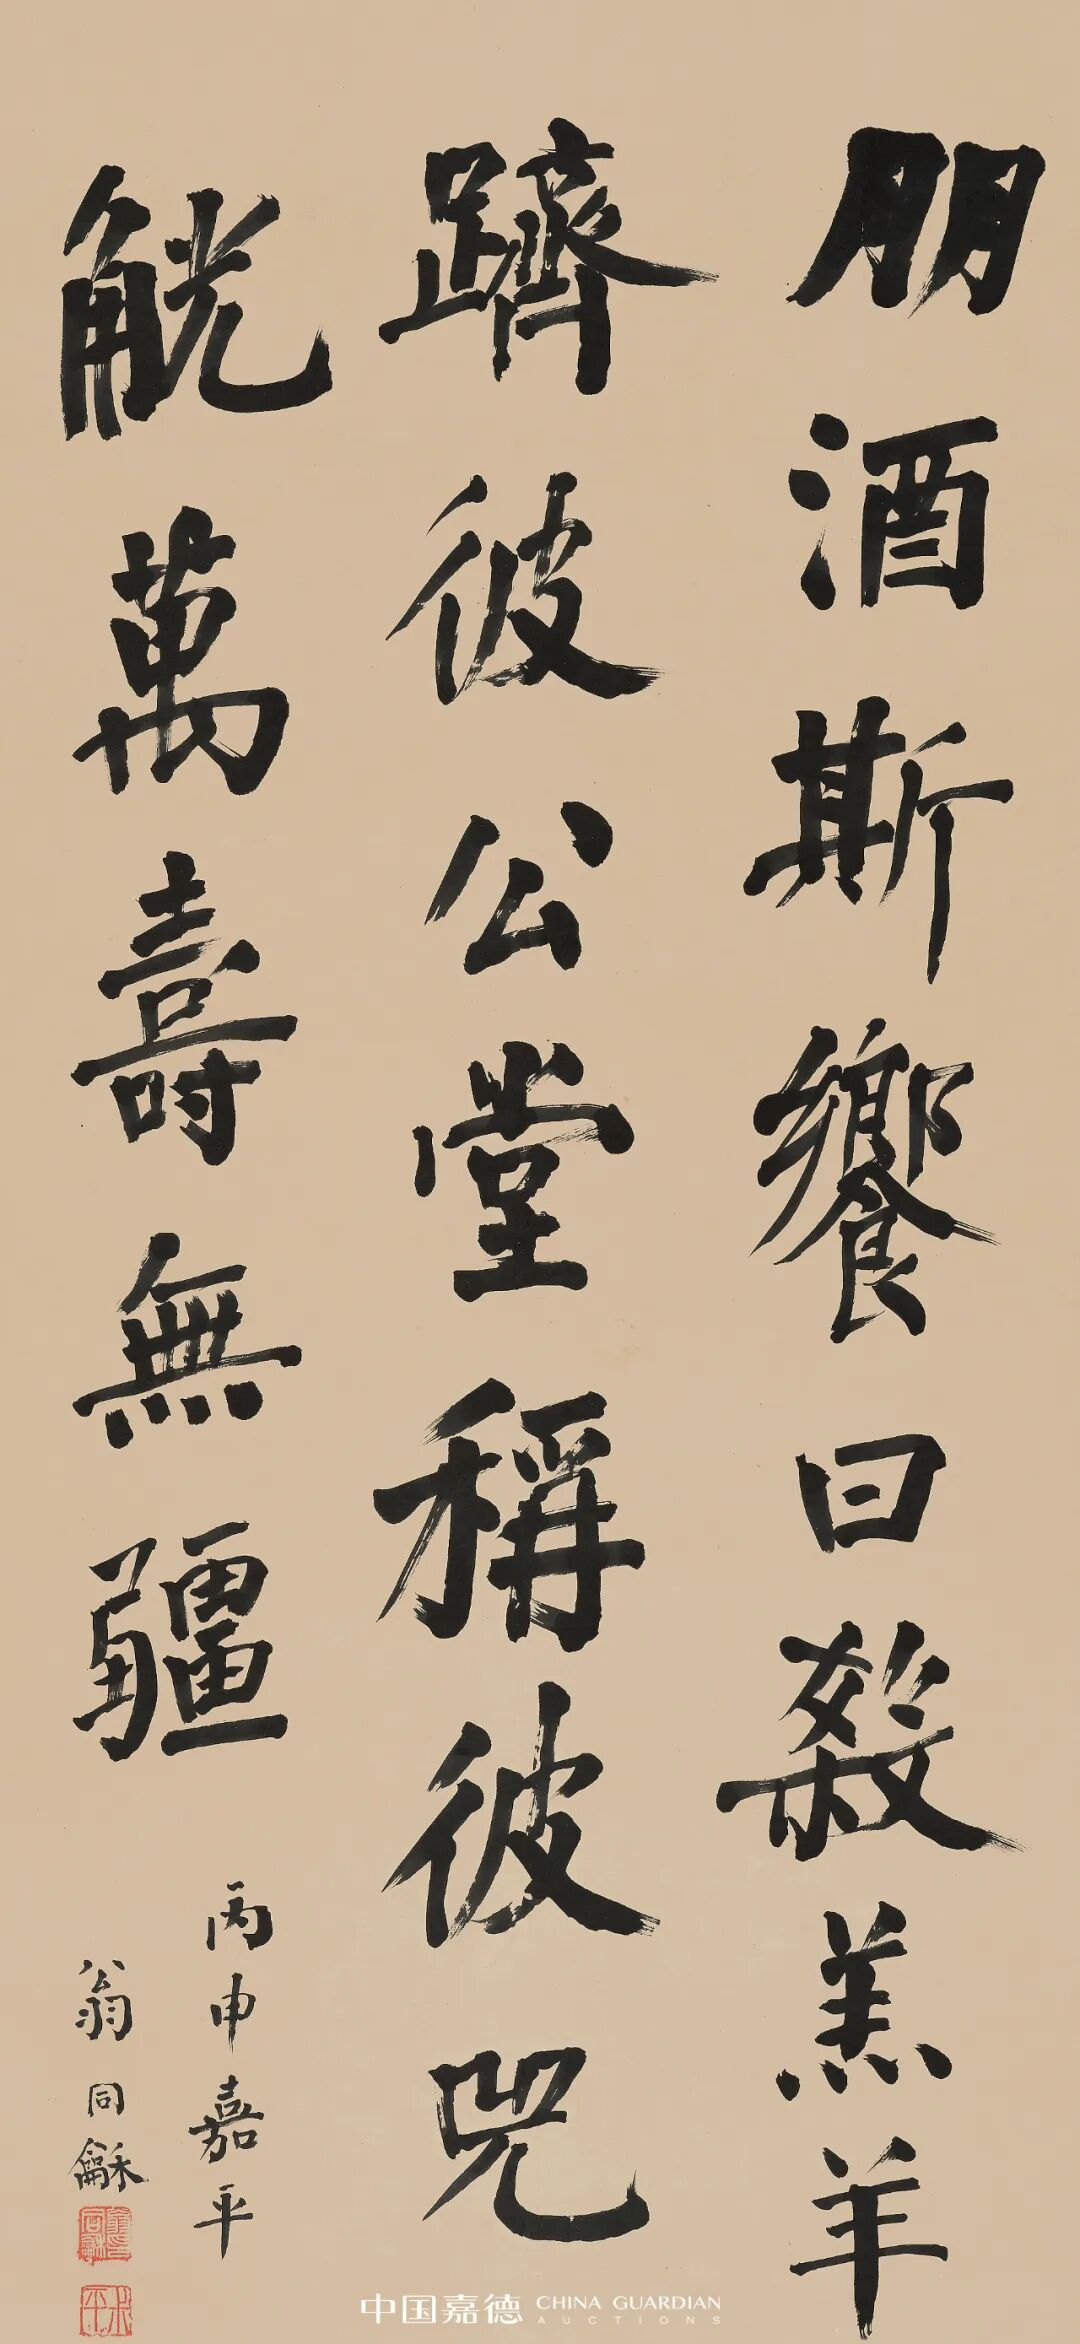 朋酒斯饗曰殺羔羊
躋彼公堂稱彼兕
觥萬壽無疆
丙申嘉平
翁同龢
中国嘉德 CHINA GUARDIAN
AUCTIONS